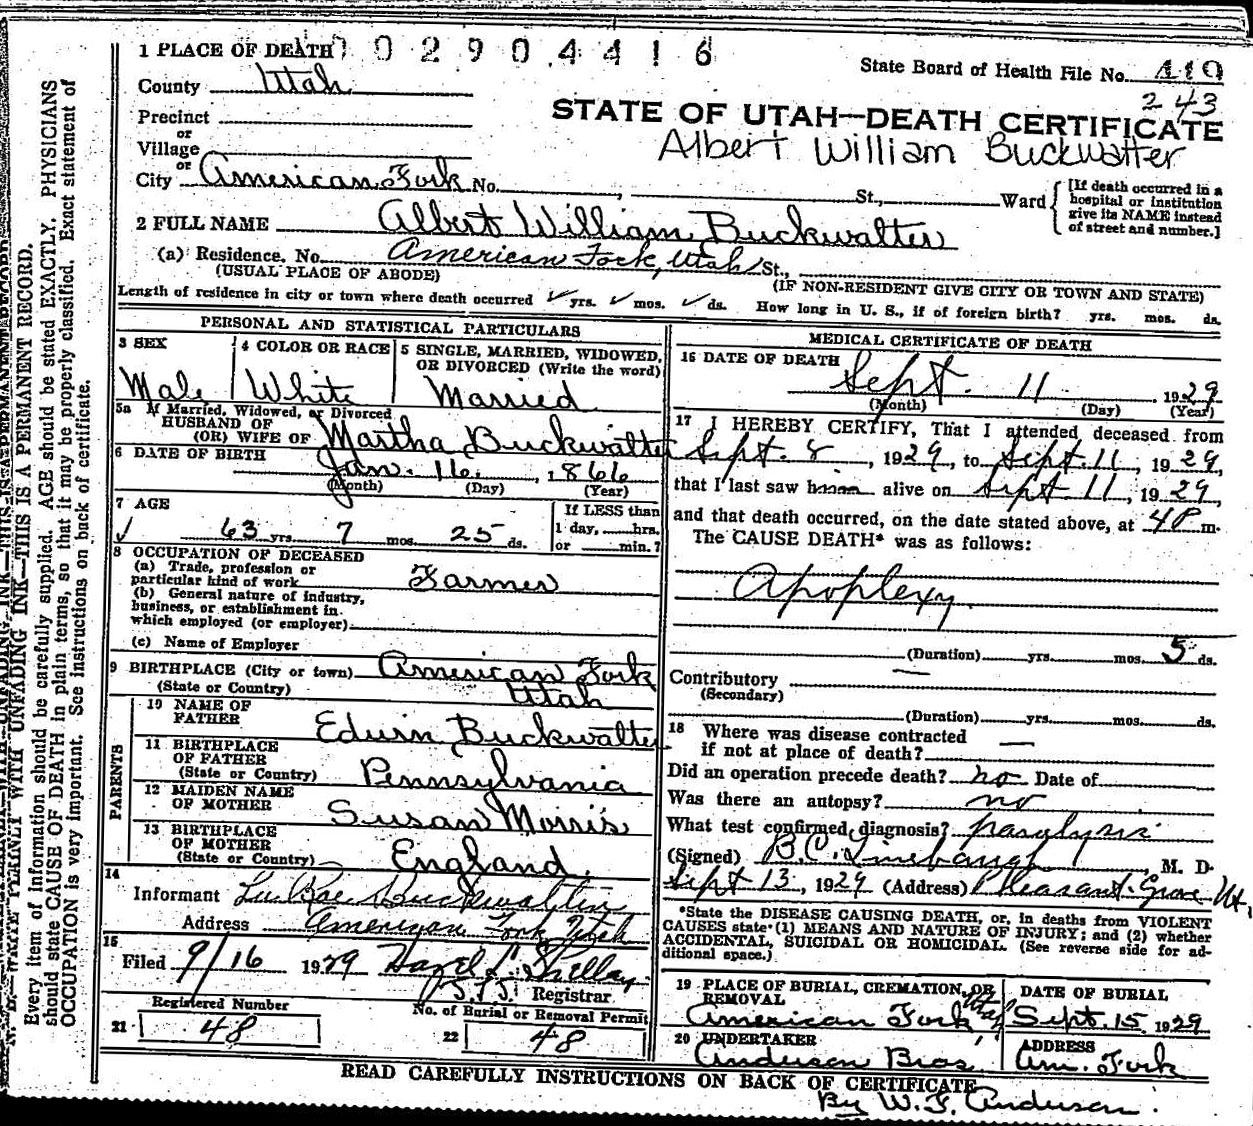 002904416
1 PLACE OF DEATH
State Board of Health File No. 410
243
County Utah
STATE OF UTAH—DEATH CERTIFICATE
Albert William Buckwalter
Precinct
or
Village
or
City American Fork No. , St., Ward
[If death occurred in a
hospital or institution
give its NAME instead
of street and number.]
2 FULL NAME Albert William Buckwalter
(a) Residence. No. American Fork, Utah St.,
(USUAL PLACE OF ABODE) (IF NON-RESIDENT GIVE CITY OR TOWN AND STATE)
Length of residence in city or town where death occurred ✓ yrs. ✓ mos. ✓ ds. How long in U. S., if of foreign birth? yrs. mos. ds.
PERSONAL AND STATISTICAL PARTICULARS
3 SEX
Male
4 COLOR OR RACE
White
5 SINGLE, MARRIED, WIDOWED,
OR DIVORCED (Write the word)
Married
5a If Married, Widowed, or Divorced
HUSBAND OF
(OR) WIFE OF Martha Buckwalter
6 DATE OF BIRTH
Jan. 16, 1866
(Month) (Day) (Year)
7 AGE
✓ 63 yrs. 7 mos. 25 ds.
If LESS than
1 day, hrs.
or min.?
8 OCCUPATION OF DECEASED
(a) Trade, profession or
particular kind of work Farmer
(b) General nature of industry,
business, or establishment in
which employed (or employer)
(c) Name of Employer
9 BIRTHPLACE (City or town) American Fork
(State or Country) Utah
PARENTS
10 NAME OF
FATHER Edwin Buckwalter
11 BIRTHPLACE
OF FATHER
(State or Country) Pennsylvania
12 MAIDEN NAME
OF MOTHER Susan Morris
13 BIRTHPLACE
OF MOTHER
(State or Country) England.
14
Informant LuRae Buckwalter
Address American Fork Utah
15
Filed 9/16 1929 Hazel L. Shelley
Registrar
Registered Number
21 48
No. of Burial or Removal Permit
22 48
MEDICAL CERTIFICATE OF DEATH
16 DATE OF DEATH
Sept. 11 1929
(Month) (Day) (Year)
17 I HEREBY CERTIFY, That I attended deceased from
Sept. 8, 1929, to Sept. 11, 1929,
that I last saw alive on Sept 11, 1929,
and that death occurred, on the date stated above, at 4 P m.
The CAUSE DEATH* was as follows:
Apoplexy.
(Duration) yrs. mos. 5 ds.
Contributory —
(Secondary)
(Duration) yrs. mos. ds.
18 Where was disease contracted
if not at place of death? —
Did an operation precede death? no Date of
Was there an autopsy? no
What test confirmed diagnosis? paralysis
(Signed) B.C. Linebaugh, M. D.
Sept 13, 1929 (Address) Pleasant Grove Ut.
*State the DISEASE CAUSING DEATH, or, in deaths from VIOLENT
CAUSES state (1) MEANS AND NATURE OF INJURY; and (2) whether
ACCIDENTAL, SUICIDAL OR HOMICIDAL. (See reverse side for ad-
ditional space.)
19 PLACE OF BURIAL, CREMATION, OR
REMOVAL
American Fork Utah
DATE OF BURIAL
Sept. 15 1929
20 UNDERTAKER
Anderson Bros.
ADDRESS
Am. Fork
READ CAREFULLY INSTRUCTIONS ON BACK OF CERTIFICATE
By W. F. Anderson.
N. B.—WRITE PLAINLY WITH UNFADING INK—THIS IS A PERMANENT RECORD.
Every item of information should be carefully supplied. AGE should be stated EXACTLY. PHYSICIANS
should state CAUSE OF DEATH in plain terms, so that it may be properly classified. Exact statement of
OCCUPATION is very important. See instructions on back of certificate.